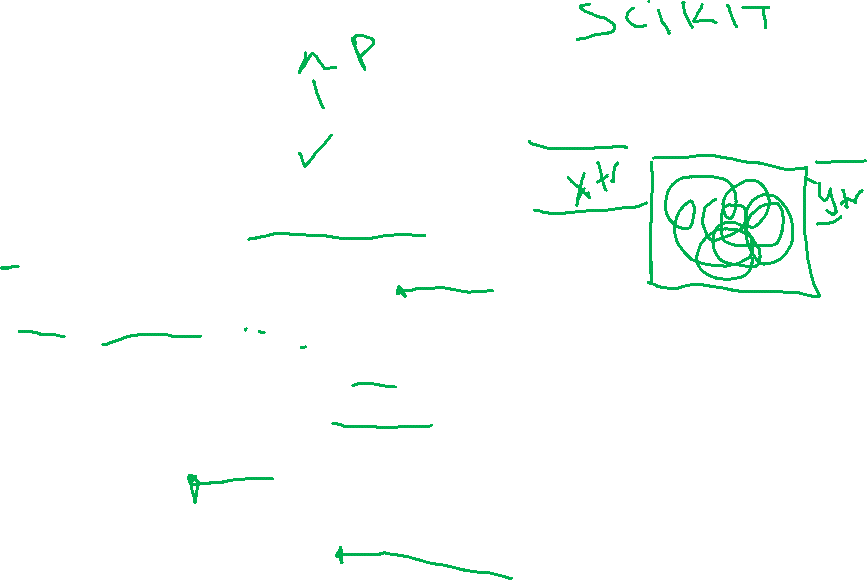 SCIKIT
P
xtr
ytr